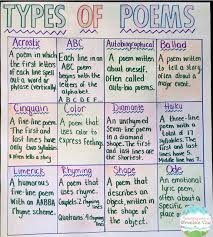 TYPES OF POEMS
Acrostic
A poem in which
the first letters
of each line spell
out a word or
phrase (vertically)
ABC
Each line in an
ABC poem
begins with the
letters of the
alphabet.
A B C D E F
Autobiographical
A poem written
about oneself,
often called
auto-bio poems.
Ballad
A poem written
to tell a story,
often about a
major event.
Cinquain
A five-line poem.
The first and last
lines have only
two syllables.
Color
A poem that uses
color to express
feelings.
Diamante
An unrhymed
Seven-line poem
in a diamond
shape. The first
and last lines are
Shortest.
Haiku
A three-line
poem with a
total of 17
syllables. It
often tells a
story.
Limerick
A humorous
five-line poem
with an AABBA
rhyme scheme.
Rhyming
A poem that
uses rhyme.
Couplets: 2 rhyming lines
Quatrains: 4 rhyming lines
Shape
A poem that
describes an
object, written in
the shape of
the object.
Ode
An emotional
lyric poem,
often about a
specific